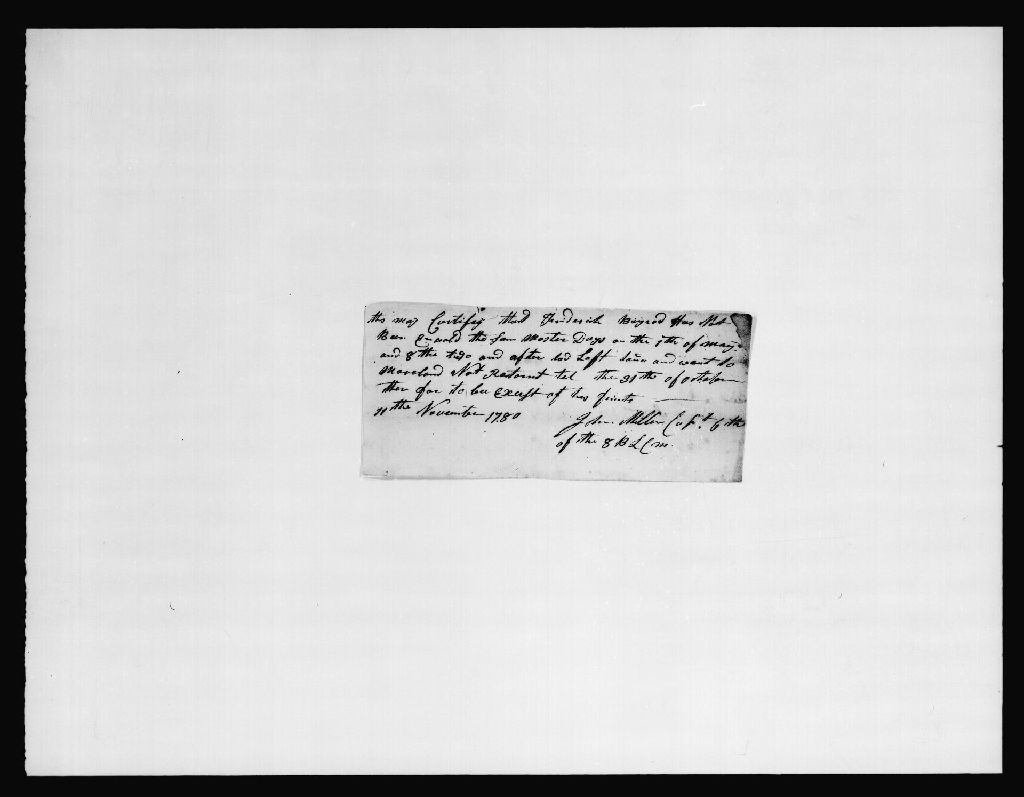 this may Certifay that Frederich Bigrod Has Not
Been Enrold the for Moster Days on the 7th of may
and 8 the two and after had Left and went to
Mareland Not Returnt tel the 31th of october
ther for to be Excust of two finets
11the November 1780 John Miller Capt. 6 the
of the 8 B L C m.